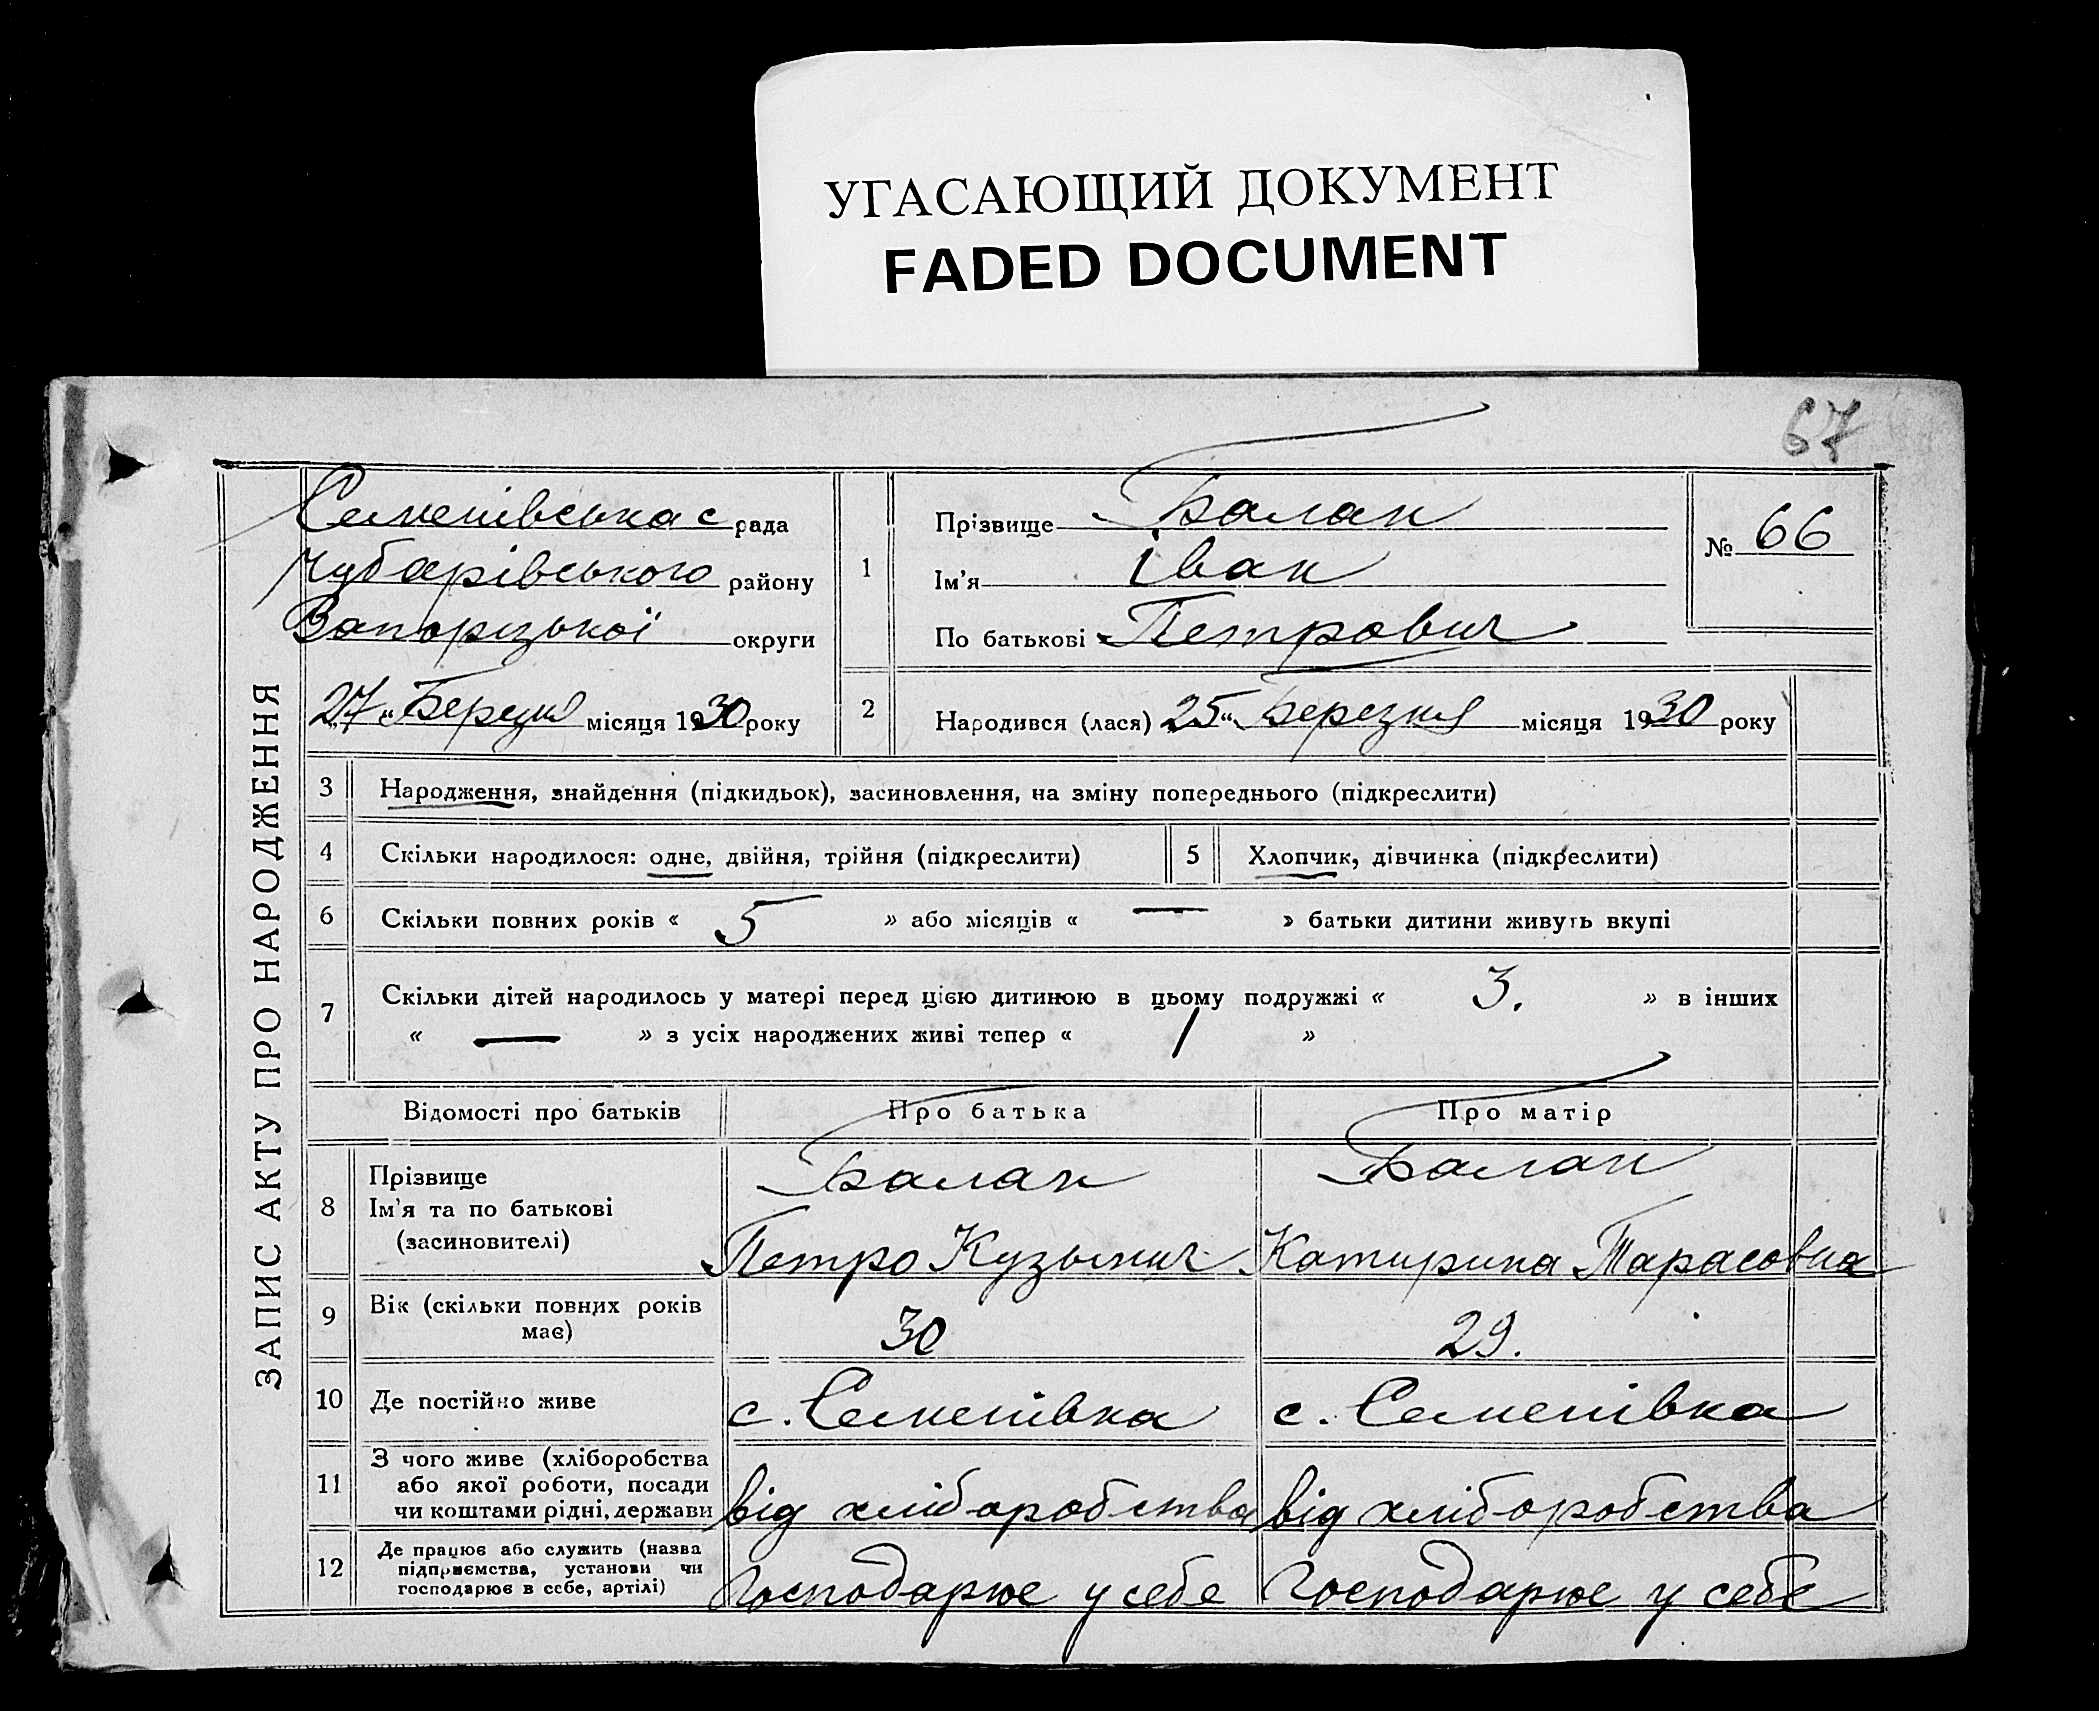 УГАСАЮЩИЙ ДОКУМЕНТ
FADED DOCUMENT
67
ЗАПИС АКТУ ПРО НАРОДЖЕННЯ
Семенівська с рада
Чубарівського району
Запорізької округи
„27“ Березня місяця 1930 року
1
Прізвище Балан
Ім'я Іван
По батькові Петрович
№ 66
2
Народився (лася) „25“ Березня місяця 1930 року
3 Народження, знайдення (підкидьок), засиновлення, на зміну попереднього (підкреслити)
4 Скільки народилося: одне, двійня, трійня (підкреслити)
5 Хлопчик, дівчинка (підкреслити)
6 Скільки повних років « 5 » або місяців « — » батьки дитини живуть вкупі
7 Скільки дітей народилось у матері перед цією дитиною в цьому подружжі « 3. » в інших
« — » з усіх народжених живі тепер « 1 »
Відомості про батьків Про батька Про матір
8
Прізвище
Ім'я та по батькові
(засиновителі)
Балан
Петро Кузьмич
Балан
Катирина Тарасовна
9
Вік (скільки повних років
має)
30
29.
10 Де постійно живе
с. Семенівка
с. Семенівка
11
З чого живе (хліборобства
або якої роботи, посади
чи коштами рідні, держави
від хліборобства
від хліборобства
12
Де працює або служить (назва
підприємства, установи чи
господарює в себе, артілі)
Господарює у себе
Господарює у себе